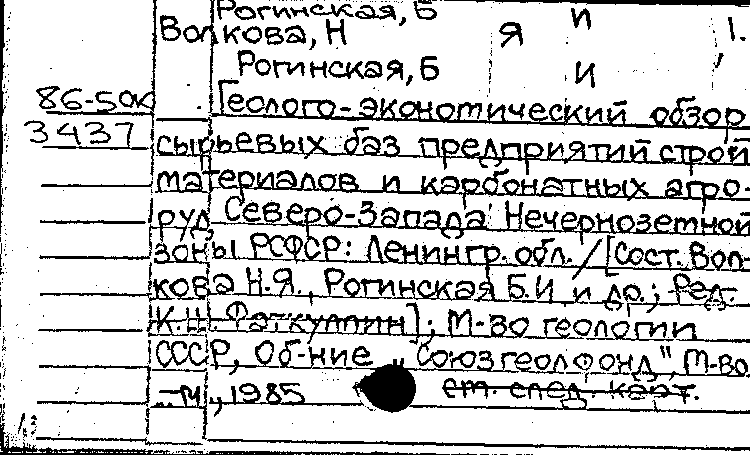 Рогинская, Б И
Волкова, Н Я 1.
Рогинская, Б И
86-50К Геолого-экономический обзор
3437 сырьевых баз предприятий строй
материалов и карбонатных агро-
руд Северо-Запада Нечерноземной
зоны РСФСР: Ленингр. обл. / [Сост. Вол-
кова Н.Я., Рогинская Б.И. и др.; Ред.
К.Ш. Фаткуллин]; М-во геологии
СССР, Об-ние "Союзгеолфонд", М-во
М., 1985 ст. след. карт.